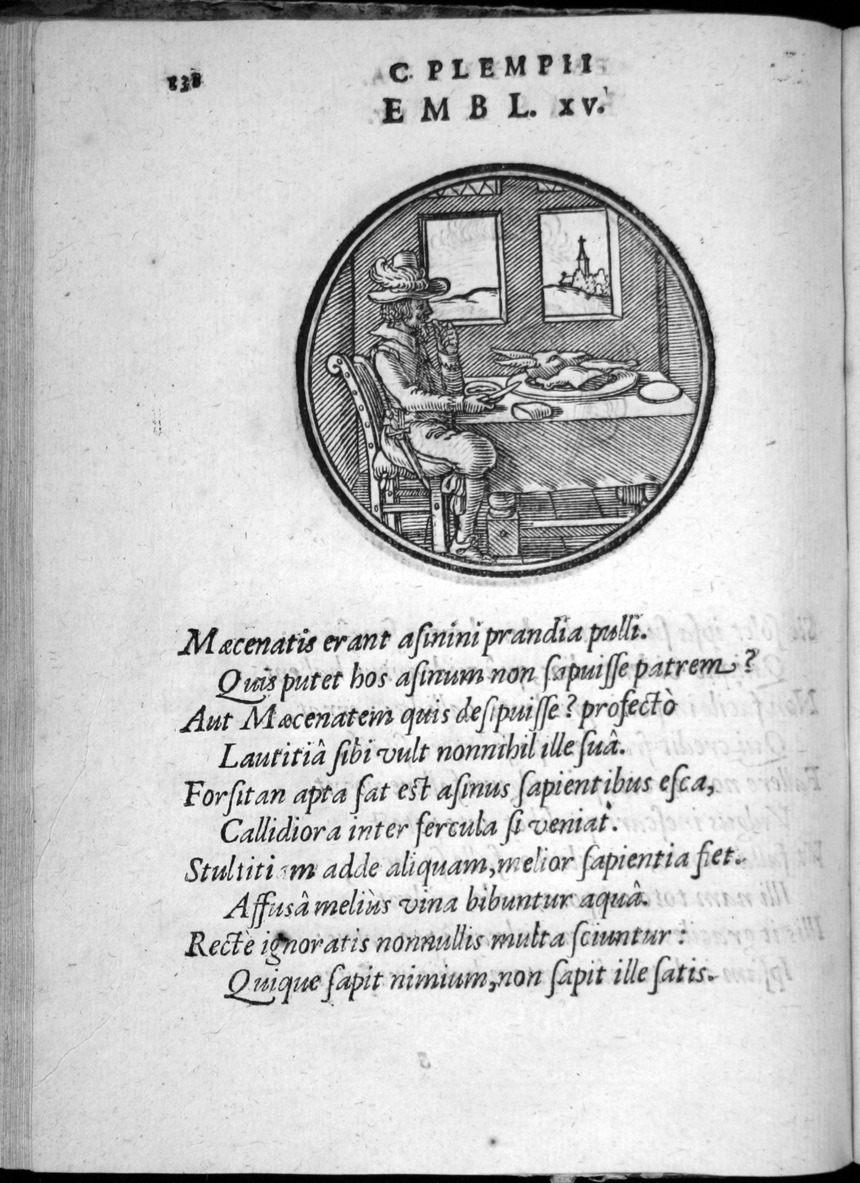 138
C. PLEMPII
EMBL. XV.
Mæcenatis erant aſinini prandia pulli.
Quis putet hos aſinum non ſapuiſſe patrem?
Aut Mæcenatem quis deſipuiſſe? profectò
Lautitiâ ſibi vult nonnihil ille ſuâ.
Forſitan apta ſat est aſinus ſapientibus eſca,
Callidiora inter fercula ſi veniat.
Stultiti m adde aliquam, melior ſapientia fiet.
Affusâ meliùs vina bibuntur aquâ.
Rectè ignoratis nonnullis multa ſciuntur:
Quique ſapit nimium, non ſapit ille ſatis.